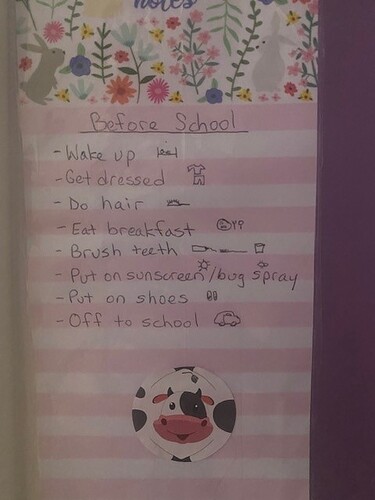 notes
Before School
- Wake up
- Get dressed
- Do hair
- Eat breakfast
- Brush teeth
- Put on sunscreen/bug spray
- Put on shoes
- Off to school